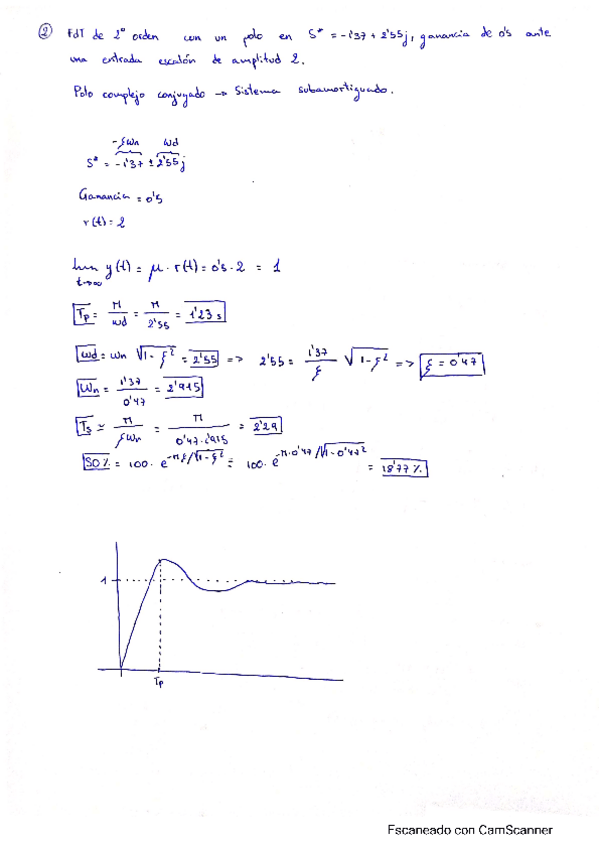 ② FdT de 2º orden con un polo en S* = -1'37 + 2'55j, ganancia de 0'5 ante
una entrada escalón de amplitud 2.
Polo complejo conjugado → Sistema subamortiguado.
-ξωn ωd
S* = -1'37 ± 2'55j
Ganancia = 0'5
r(t) = 2
lim y(t) = μ · r(t) = 0'5 · 2 = 1
t→∞
Tp = π/ωd = π/2'55 = 1'23 s
ωd = ωn √1-ξ² = 2'55 => 2'55 = 1'37/ξ √1-ξ² => ξ = 0'47
ωn = 1'37/0'47 = 2'915
Ts ≃ π/ξωn = π/0'47·2'915 = 2'29
SO% = 100 · e^-πξ/√1-ξ² = 100 · e^-π·0'47/√1-0'47² = 18'77 %
1
Tp
Escaneado con CamScanner